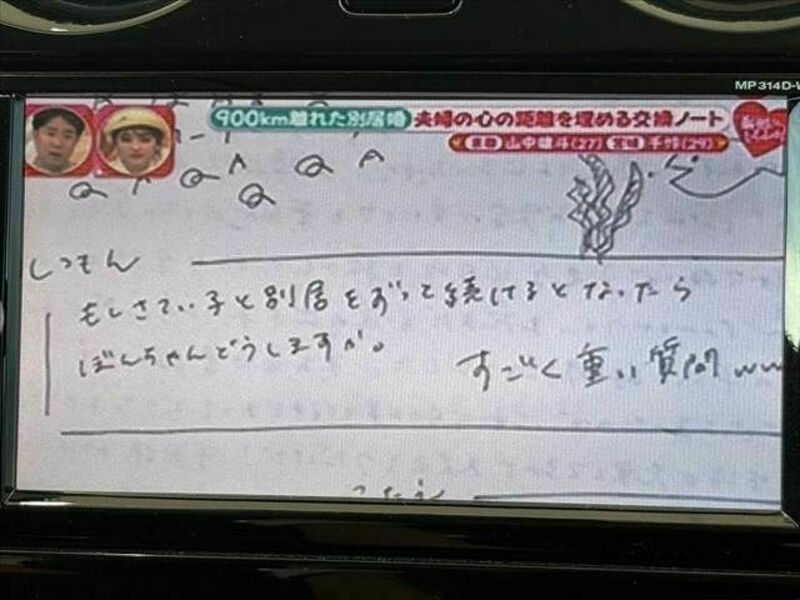 MP314D-W
900km離れた別居婚 夫婦の心の距離を埋める交換ノート
山中雄斗(27) 宮崎 千怜(29)
しつもん
もしさてぃ子と別居をずっと続けるとなったら
ぼんちゃんどうしますか。
すごく重い質問ww
こたえ